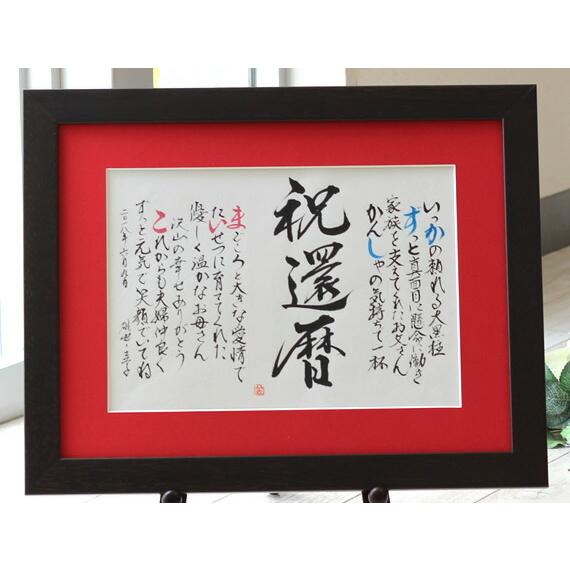 いっかの頼れる大黒柱
ずっと真面目に懸命に働き
家族を支えてくれたお父さん
かんしゃの気持ちで一杯
祝還暦
まごころと大きな愛情で
たいせつに育ててくれた
優しく温かなお母さん
沢山の幸せありがとう
これからも夫婦仲良く
ずっと元気で笑顔でいてね
二〇一八年六月九日